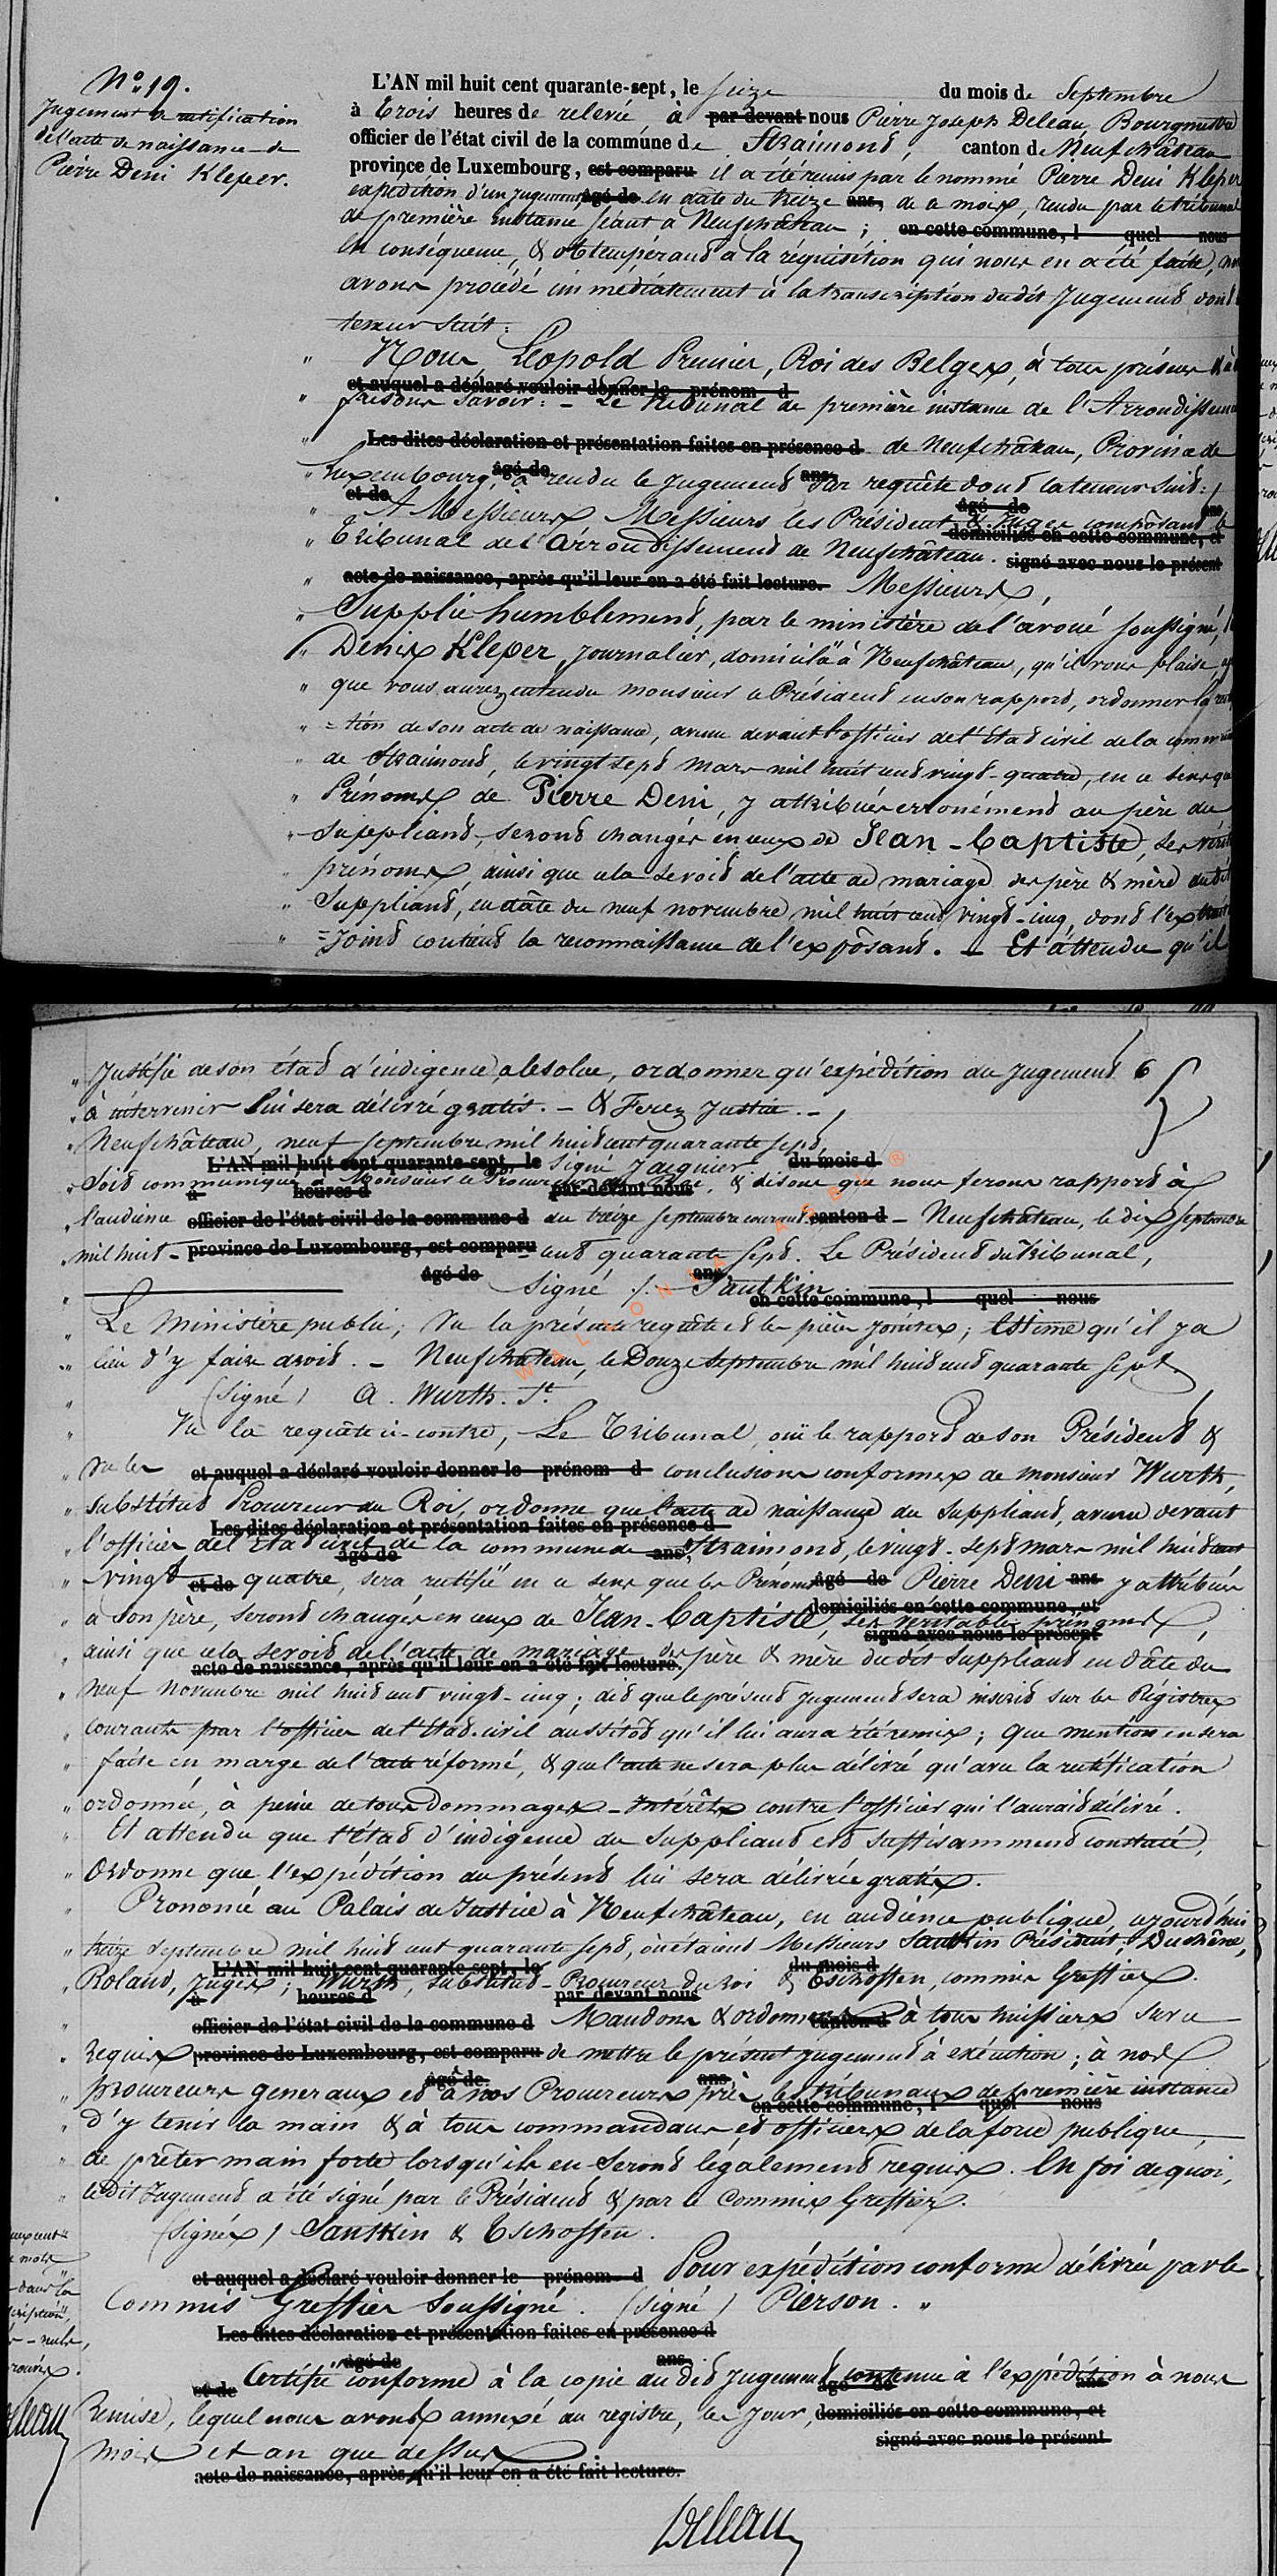 N° 19.
Jugement de rectification
de l'acte de naissance de
Pierre Deni Kleper.
L'AN mil huit cent quarante-sept, le seize du mois de Septembre
à trois heures de relevée, à par devant nous Pierre Joseph Deleau, Bourgmestre
officier de l'état civil de la commune de Straimont, canton de Neufchâteau
province de Luxembourg, est comparu il a été remis par le nommé Pierre Deni Kleper
expédition d'un jugement âgé de en date du treize ans, de ce mois, rendu par le tribunal
de première instance séant à Neufchâteau ; en cette commune, l quel nous
En conséquence, & obtempérant à la réquisition qui nous en a été faite,
avons procédé immédiatement à la transcription dudit Jugement dont
teneur suit :
" Nous, Léopold Premier, Roi des Belges, à tous présens & à
et auquel a déclaré vouloir donner le prénom d
" faisons savoir : - Le Tribunal de première instance de l'Arrondissement
" Les dites déclaration et présentation faites en présence d de Neufchâteau, Province de
" Luxembourg, âgé de a rendu le jugement ans, sur requête dont la teneur suit :
et de âgé de ans
" A Messieurs Messieurs les Président & Juges composant le
domiciliés en cette commune, et
" Tribunal de l'Arrondissement de Neufchâteau. signé avec nous le présent
" acte de naissance, après qu'il leur en a été fait lecture. Messieurs,
" Supplie humblement, par le ministère de l'avoué soussigné,
" Denis Kleper, journalier, domicilié à Neufchâteau, qu'il vous plaise,
" que vous aurez entendu monsieur le Président en son rapport, ordonner la
" =tion de son acte de naissance, avenu devant l'officier de l'État civil de la commune
" de Straimont, le vingt sept mars mil huit cent vingt-quatre, en ce sens que
" Prénoms de Pierre Deni, y attribués erronément au père du
" Suppliant, seront changés en ceux de Jean-Baptiste, ses
" prénoms, ainsi que cela se voit de l'acte de mariage des père & mère dudit
" Suppliant, en date du neuf novembre mil huit cent vingt-cinq, dont l'extrait
" =joint contient la reconnaissance de l'exposant. - Et attendu qu'il
" Justifie de son état d'indigence absolue, ordonner qu'expédition du jugement 6
" à intervenir lui sera délivré gratis. - & Ferez Justice. -
" Neufchâteau, neuf septembre mil huit cent quarante sept,
L'AN mil huit cent quarante-sept, le Signé Jacquier du mois d
" Soit communiqué à Monsieur le Procureur du Roi, & disons que nous ferons rapport à
à heures d par-devant nous
" l'audience officier de l'état civil de la commune d du treize septembre courant canton d - Neufchâteau, le dix septembre
" mil huit - province de Luxembourg, est comparu cent quarante sept. Le Président du Tribunal,
âgé de ans,
" Signé /. Sautkin
en cette commune, l quel nous
" Le Ministère public, Vu la présente requête et les pièces jointes ; Estime qu'il y a
" lieu d'y faire droit. - Neufchâteau, le Douze septembre mil huit cent quarante sept.
" (Signé) A. Wurth. St.
" Vu la requête ci-contre, Le Tribunal, ouï le rapport de son Président &
" Vu les et auquel a déclaré vouloir donner le prénom d conclusions conformes de monsieur Wurth,
" substitut Procureur du Roi, ordonne que l'acte de naissance du suppliant, avenu devant
Les dites déclaration et présentation faites en présence d
" l'officier de l'État civil de la commune de ans, Straimont, le vingt-sept mars mil huit cent
âgé de
" vingt et de quatre, sera rectifié en ce sens que les Prénoms âgé de Pierre Deni ans y attribués
domiciliés en cette commune, et
" à son père, seront changés en ceux de Jean-Baptiste, ses véritables prénoms,
signé avec nous le présent
" ainsi que cela se voit de l'acte de mariage des père & mère dudit suppliant en date du
acte de naissance, après qu'il leur en a été fait lecture.
" neuf Novembre mil huit cent vingt-cinq ; dit que le présent jugement sera inscrit sur les Régistres
" courants par l'officier de l'État-civil aussitôt qu'il lui aura été remis ; Que mention en sera
" faite en marge de l'acte réformé, & que l'acte ne sera plus délivré qu'avec la rectification
" ordonnée, à peine de tous dommages-Intérêts contre l'officier qui l'aurait délivré.
" Et attendu que l'état d'indigence du suppliant est suffisamment constaté,
" Ordonne que l'expédition du présent lui sera délivrée gratis.
" Prononcé au Palais de Justice à Neufchâteau, en audience publique, cejourd'hui
" treize Septembre mil huit cent quarante sept, où étaient Messieurs Sautkin Président, Duchêne,
L'AN mil huit cent quarante sept, le du mois d
" Roland, Juges ; Wurth, substitut-Procureur du Roi & Tschoffen, commis Greffier.
à heures d par devant nous
" officier de l'état civil de la commune d Mandons & ordonnons canton d à tous huissiers sur ce
" Requis province de Luxembourg, est comparu de mettre le présent jugement à exécution ; à nos
âgé de ans,
" procureurs généraux et à nos Procureurs près les tribunaux de première instance
en cette commune, l quel nous
" d'y tenir la main & à tous commandans et officiers de la force publique,
" de prêter main forte lorsqu'ils en seront légalement requis. En foi de quoi,
" ledit Jugement a été signé par le Président & par le Commis Greffier.
(Signés) Sautkin & Tschoffen.
et auquel a déclaré vouloir donner le prénom d Pour expédition conforme délivrée par le
Commis Greffier Soussigné. (signé) Pierson. "
Les dites déclaration et présentation faites en présence d
âgé de ans,
et de Certifié conforme à la copie du dit jugement contenue à l'expédition à nous
âgé de ans
Remise, lequel nous avons annexé au registre, les jour, domiciliés en cette commune, et
signé avec nous le présent
mois et an que dessus
acte de naissance, après qu'il leur en a été fait lecture.
Deleau